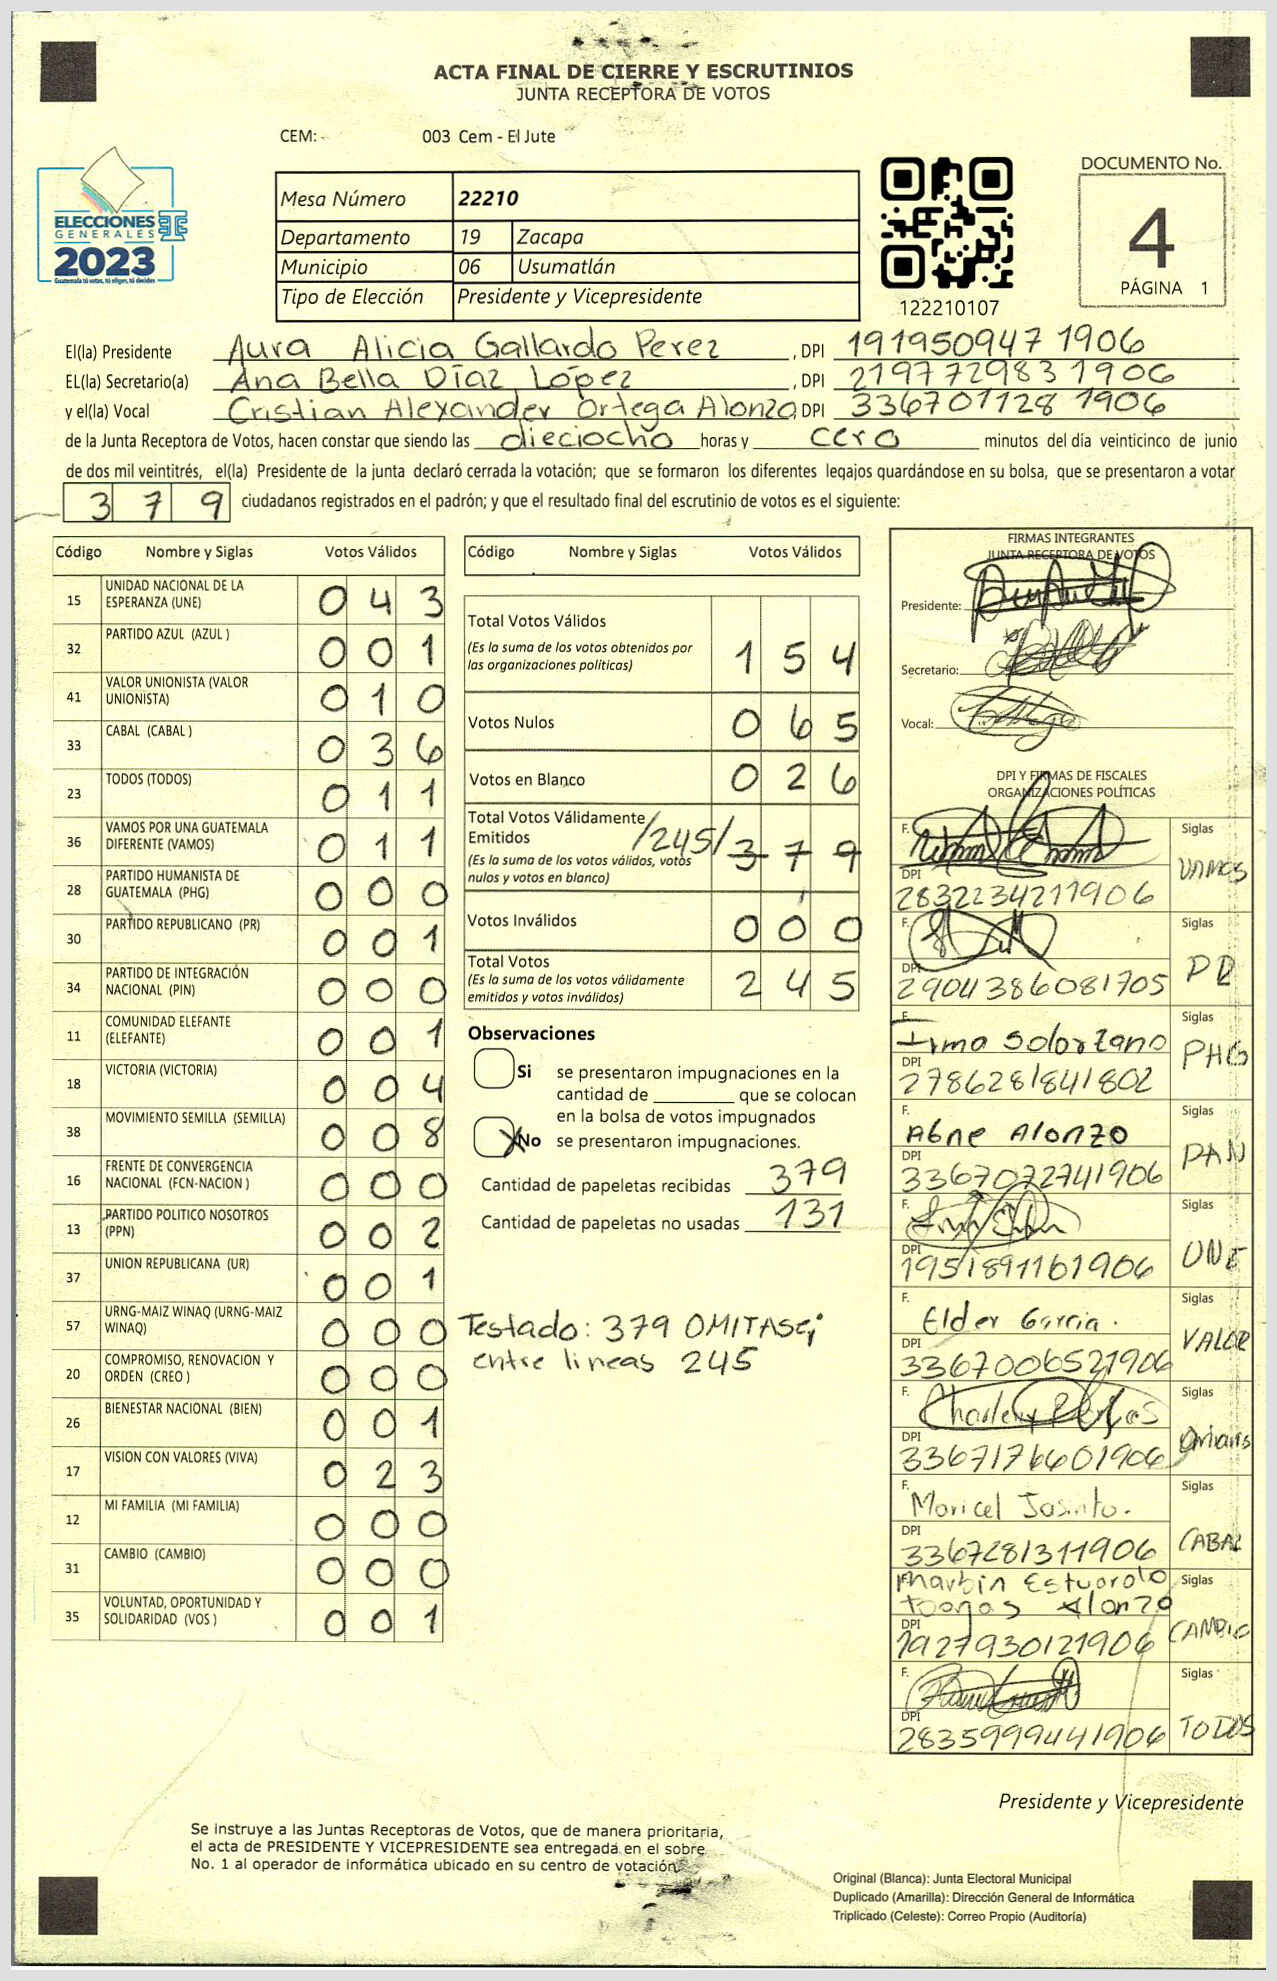 ACTA FINAL DE CIERRE Y ESCRUTINIOS
JUNTA RECEPTORA DE VOTOS
CEM: 003 Cem - El Jute
ELECCIONES
GENERALES
2023
Guatemala tú votas, tú eliges, tú decides
Mesa Número 22210
Departamento 19 Zacapa
Municipio 06 Usumatlán
Tipo de Elección Presidente y Vicepresidente
122210107
DOCUMENTO No.
4
PÁGINA 1
El(la) Presidente Aura Alicia Gallardo Perez , DPI 191950947 1906
EL(la) Secretario(a) Ana Bella Díaz López , DPI 219772983 1906
y el(la) Vocal Cristian Alexander Ortega Alonzo, DPI 336701128 1906
de la Junta Receptora de Votos, hacen constar que siendo las dieciocho horas y cero minutos del día veinticinco de junio
de dos mil veintitrés, el(la) Presidente de la junta declaró cerrada la votación; que se formaron los diferentes legajos quardándose en su bolsa, que se presentaron a votar
3 7 9 ciudadanos registrados en el padrón; y que el resultado final del escrutinio de votos es el siguiente:
Código Nombre y Siglas Votos Válidos
15 UNIDAD NACIONAL DE LA ESPERANZA (UNE) 0 4 3
32 PARTIDO AZUL (AZUL ) 0 0 1
41 VALOR UNIONISTA (VALOR UNIONISTA) 0 1 0
33 CABAL (CABAL ) 0 3 6
23 TODOS (TODOS) 0 1 1
36 VAMOS POR UNA GUATEMALA DIFERENTE (VAMOS) 0 1 1
28 PARTIDO HUMANISTA DE GUATEMALA (PHG) 0 0 0
30 PARTIDO REPUBLICANO (PR) 0 0 1
34 PARTIDO DE INTEGRACIÓN NACIONAL (PIN) 0 0 0
11 COMUNIDAD ELEFANTE (ELEFANTE) 0 0 1
18 VICTORIA (VICTORIA) 0 0 4
38 MOVIMIENTO SEMILLA (SEMILLA) 0 0 8
16 FRENTE DE CONVERGENCIA NACIONAL (FCN-NACION ) 0 0 0
13 PARTIDO POLITICO NOSOTROS (PPN) 0 0 2
37 UNION REPUBLICANA (UR) 0 0 1
57 URNG-MAIZ WINAQ (URNG-MAIZ WINAQ) 0 0 0
20 COMPROMISO, RENOVACION Y ORDEN (CREO ) 0 0 0
26 BIENESTAR NACIONAL (BIEN) 0 0 1
17 VISION CON VALORES (VIVA) 0 2 3
12 MI FAMILIA (MI FAMILIA) 0 0 0
31 CAMBIO (CAMBIO) 0 0 0
35 VOLUNTAD, OPORTUNIDAD Y SOLIDARIDAD (VOS ) 0 0 1
Código Nombre y Siglas Votos Válidos
Total Votos Válidos
(Es la suma de los votos obtenidos por
las organizaciones políticas) 1 5 4
Votos Nulos 0 6 5
Votos en Blanco 0 2 6
Total Votos Válidamente
Emitidos /245/ 3 7 9
(Es la suma de los votos válidos, votos
nulos y votos en blanco)
Votos Inválidos 0 0 0
Total Votos
(Es la suma de los votos válidamente
emitidos y votos inválidos) 2 4 5
Observaciones
Si se presentaron impugnaciones en la
cantidad de ________ que se colocan
en la bolsa de votos impugnados
X No se presentaron impugnaciones.
Cantidad de papeletas recibidas 379
Cantidad de papeletas no usadas 131
Testado: 379 OMITASE;
entre lineas 245
FIRMAS INTEGRANTES
JUNTA RECEPTORA DE VOTOS
Presidente:
Secretario:
Vocal:
DPI Y FIRMAS DE FISCALES
ORGANIZACIONES POLÍTICAS
F. Siglas
VAMOS
DPI
2832234211906
F. Siglas
DPI
29041386081705
F. Irma Solorzano Siglas
PHG
DPI
2786281841802
F. Siglas
Abne Alonzo
PAN
DPI
3367072741906
F. Siglas
UNE
DPI
1951891161906
F. Siglas
Elder Garcia.
VALOR
DPI
3367006521906
F. Siglas
DPI
3367176601906
F. Siglas
Maricel Jasinto.
CABAL
DPI
3367281311906
Marbin Estuardo Siglas
Alonzo
CAMBIO
DPI
1927930121906
F. Siglas
TODOS
DPI
2835999441906
Presidente y Vicepresidente
Se instruye a las Juntas Receptoras de Votos, que de manera prioritaria,
el acta de PRESIDENTE Y VICEPRESIDENTE sea entregada en el sobre
No. 1 al operador de informática ubicado en su centro de votación.
Original (Blanca): Junta Electoral Municipal
Duplicado (Amarilla): Dirección General de Informática
Triplicado (Celeste): Correo Propio (Auditoría)